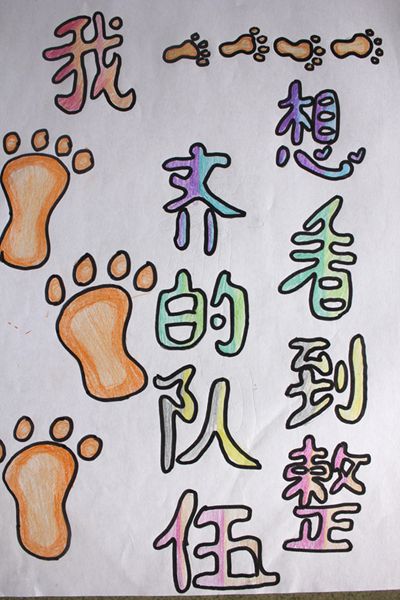 我
想看到整
齐的队伍